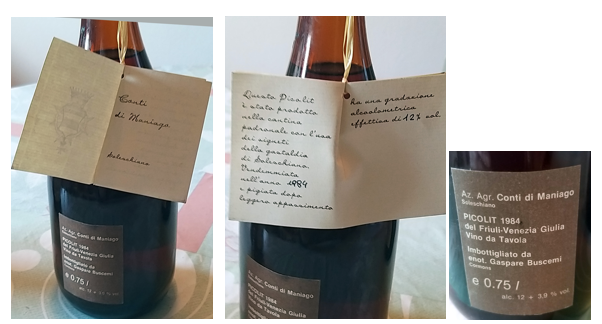 Conti
di Maniago
Soleschiano
Az. Agr. Conti di Maniago
PICOLIT 1984
del Friuli-Venezia Giulia
Vino da Tavola
Imbottigliato da
enot. Gaspare Buscemi
e 0.75 l
Questo Picolit
è stato prodotto
nella cantina
padronale con l'uva
dei vigneti
della gastaldia
di Soleschiano.
Vendemmiato
nell'anno 1984
e pigiato dopo
leggero appassimento
ha una gradazione
alcoolometrica
effettiva di 12% vol
Az. Agr. Conti di Maniago
PICOLIT 1984
del Friuli-Venezia Giulia
Vino da Tavola
Imbottigliato da
enot. Gaspare Buscemi
Az. Agr. Conti di Maniago
Soleschiano
PICOLIT 1984
del Friuli-Venezia Giulia
Vino da Tavola
Imbottigliato da
enot. Gaspare Buscemi
Cormons
e 0.75 l
alc. 12 + 3,9 % vol.